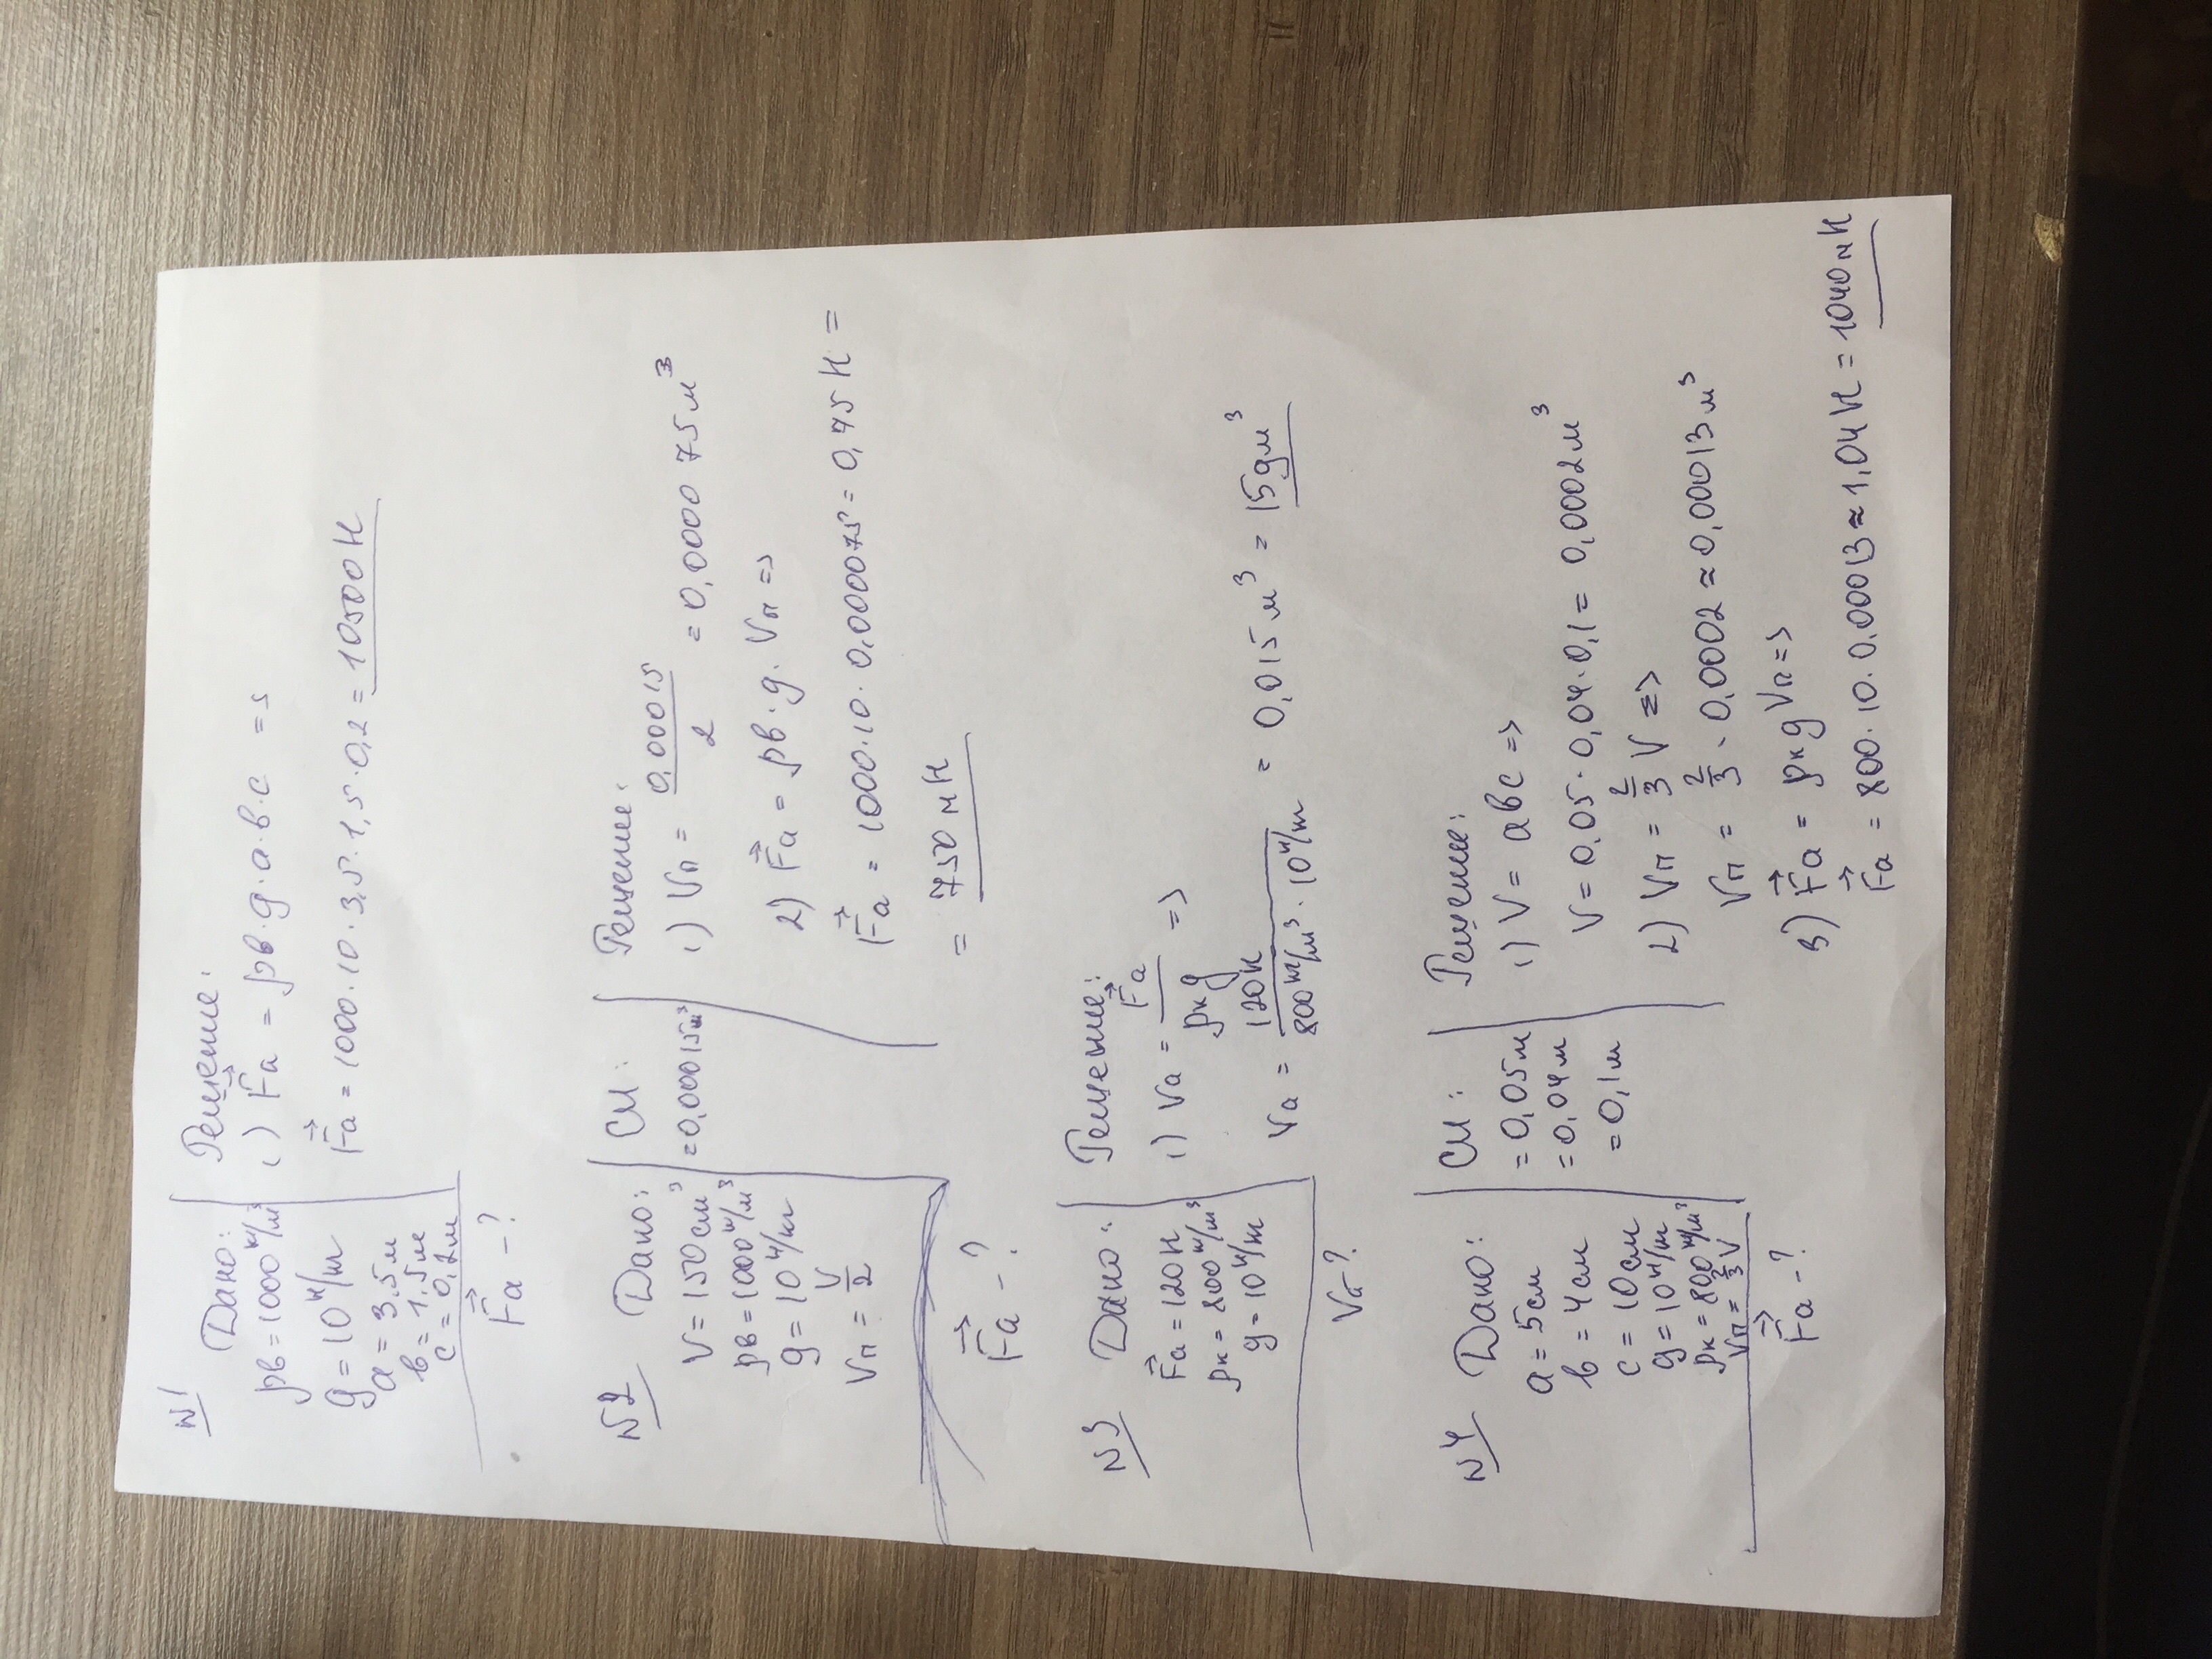 N1
Дано:
ρв=1000 кг/м³
g=10 н/кг
a=3,5м
b=1,5м
c=0,2м
F⃗a-?
Решение:
1) F⃗a = ρв·g·a·b·c =>
F⃗a = 1000·10·3,5·1,5·0,2 = 10500Н
N2
Дано:
V=150см³
ρв=1000кг/м³
g=10 н/кг
Vп = V/2
F⃗a -?
СИ:
=0,00015м³
Решение:
1) Vп = 0,00015/2 = 0,000075м³
2) F⃗a = ρв·g·Vп =>
F⃗a = 1000·10·0,000075 = 0,75Н =
= 750мН
N3
Дано:
F⃗a = 120Н
ρк = 800кг/м³
g=10 н/кг
Vп?
Решение:
1) Va = F⃗a/ρкg =>
Va = 120Н/800кг/м³·10н/кг = 0,015м³ = 15дм³
N4
Дано:
a = 5см
b = 4см
c = 10см
g=10н/кг
ρк=800кг/м³
Vп = 2/3 V
F⃗a -?
СИ:
=0,05м
=0,04м
=0,1м
Решение:
1) V = abc =>
V=0,05·0,04·0,1 = 0,0002м³
2) Vп = 2/3 V =>
Vп = 2/3 · 0,0002 ≈ 0,00013м³
3) F⃗a = ρкgVп =>
F⃗a = 800·10·0.00013 ≈ 1,04Н = 1040мН